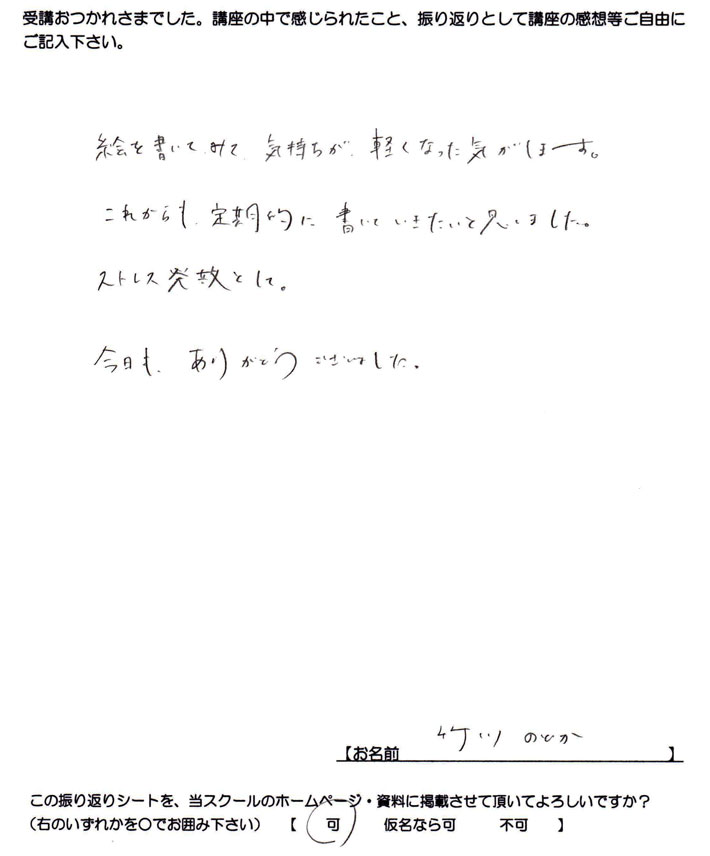 受講おつかれさまでした。講座の中で感じられたこと、振り返りとして講座の感想等ご自由に
ご記入下さい。
絵を書いてみて、気持ちが、軽くなった気がします。
これからも、定期的に書いていきたいと思いました。
ストレス発散として。
今日も、ありがとうございました。
【お名前 竹川 のどか 】
この振り返りシートを、当スクールのホームページ・資料に掲載させて頂いてよろしいですか？
（右のいずれかを〇でお囲み下さい） 【 可 仮名なら可 不可 】